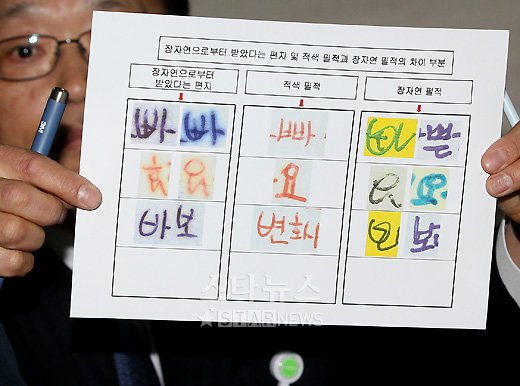 장자연으로부터 받았다는 편지 및 적색 필적과 장자연 필적의 차이 부분
장자연으로부터 받았다는 편지
적색 필적
장자연 필적
빠 빠
빠
쁜
요
요
요 요
바보
변호사
보
스타뉴스
STARNEWS